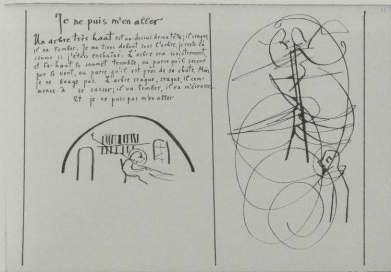 Je ne puis m'en aller
Un arbre très haut est au-dessus de ma tête; il craque,
il va tomber. Je me tiens debout sous l'arbre, je reste là
comme si j'étais enchaîné. L'arbre crie sinistrement,
et là-haut le sommet tremble, ou parce qu'il secoué
par le vent, ou parce qu'il est près de sa chute. Mais
je ne bouge pas. L'arbre craque, craque, il com-
mence à se casser, il va tomber, il va m'écraser.
Et je ne puis pas m'en aller